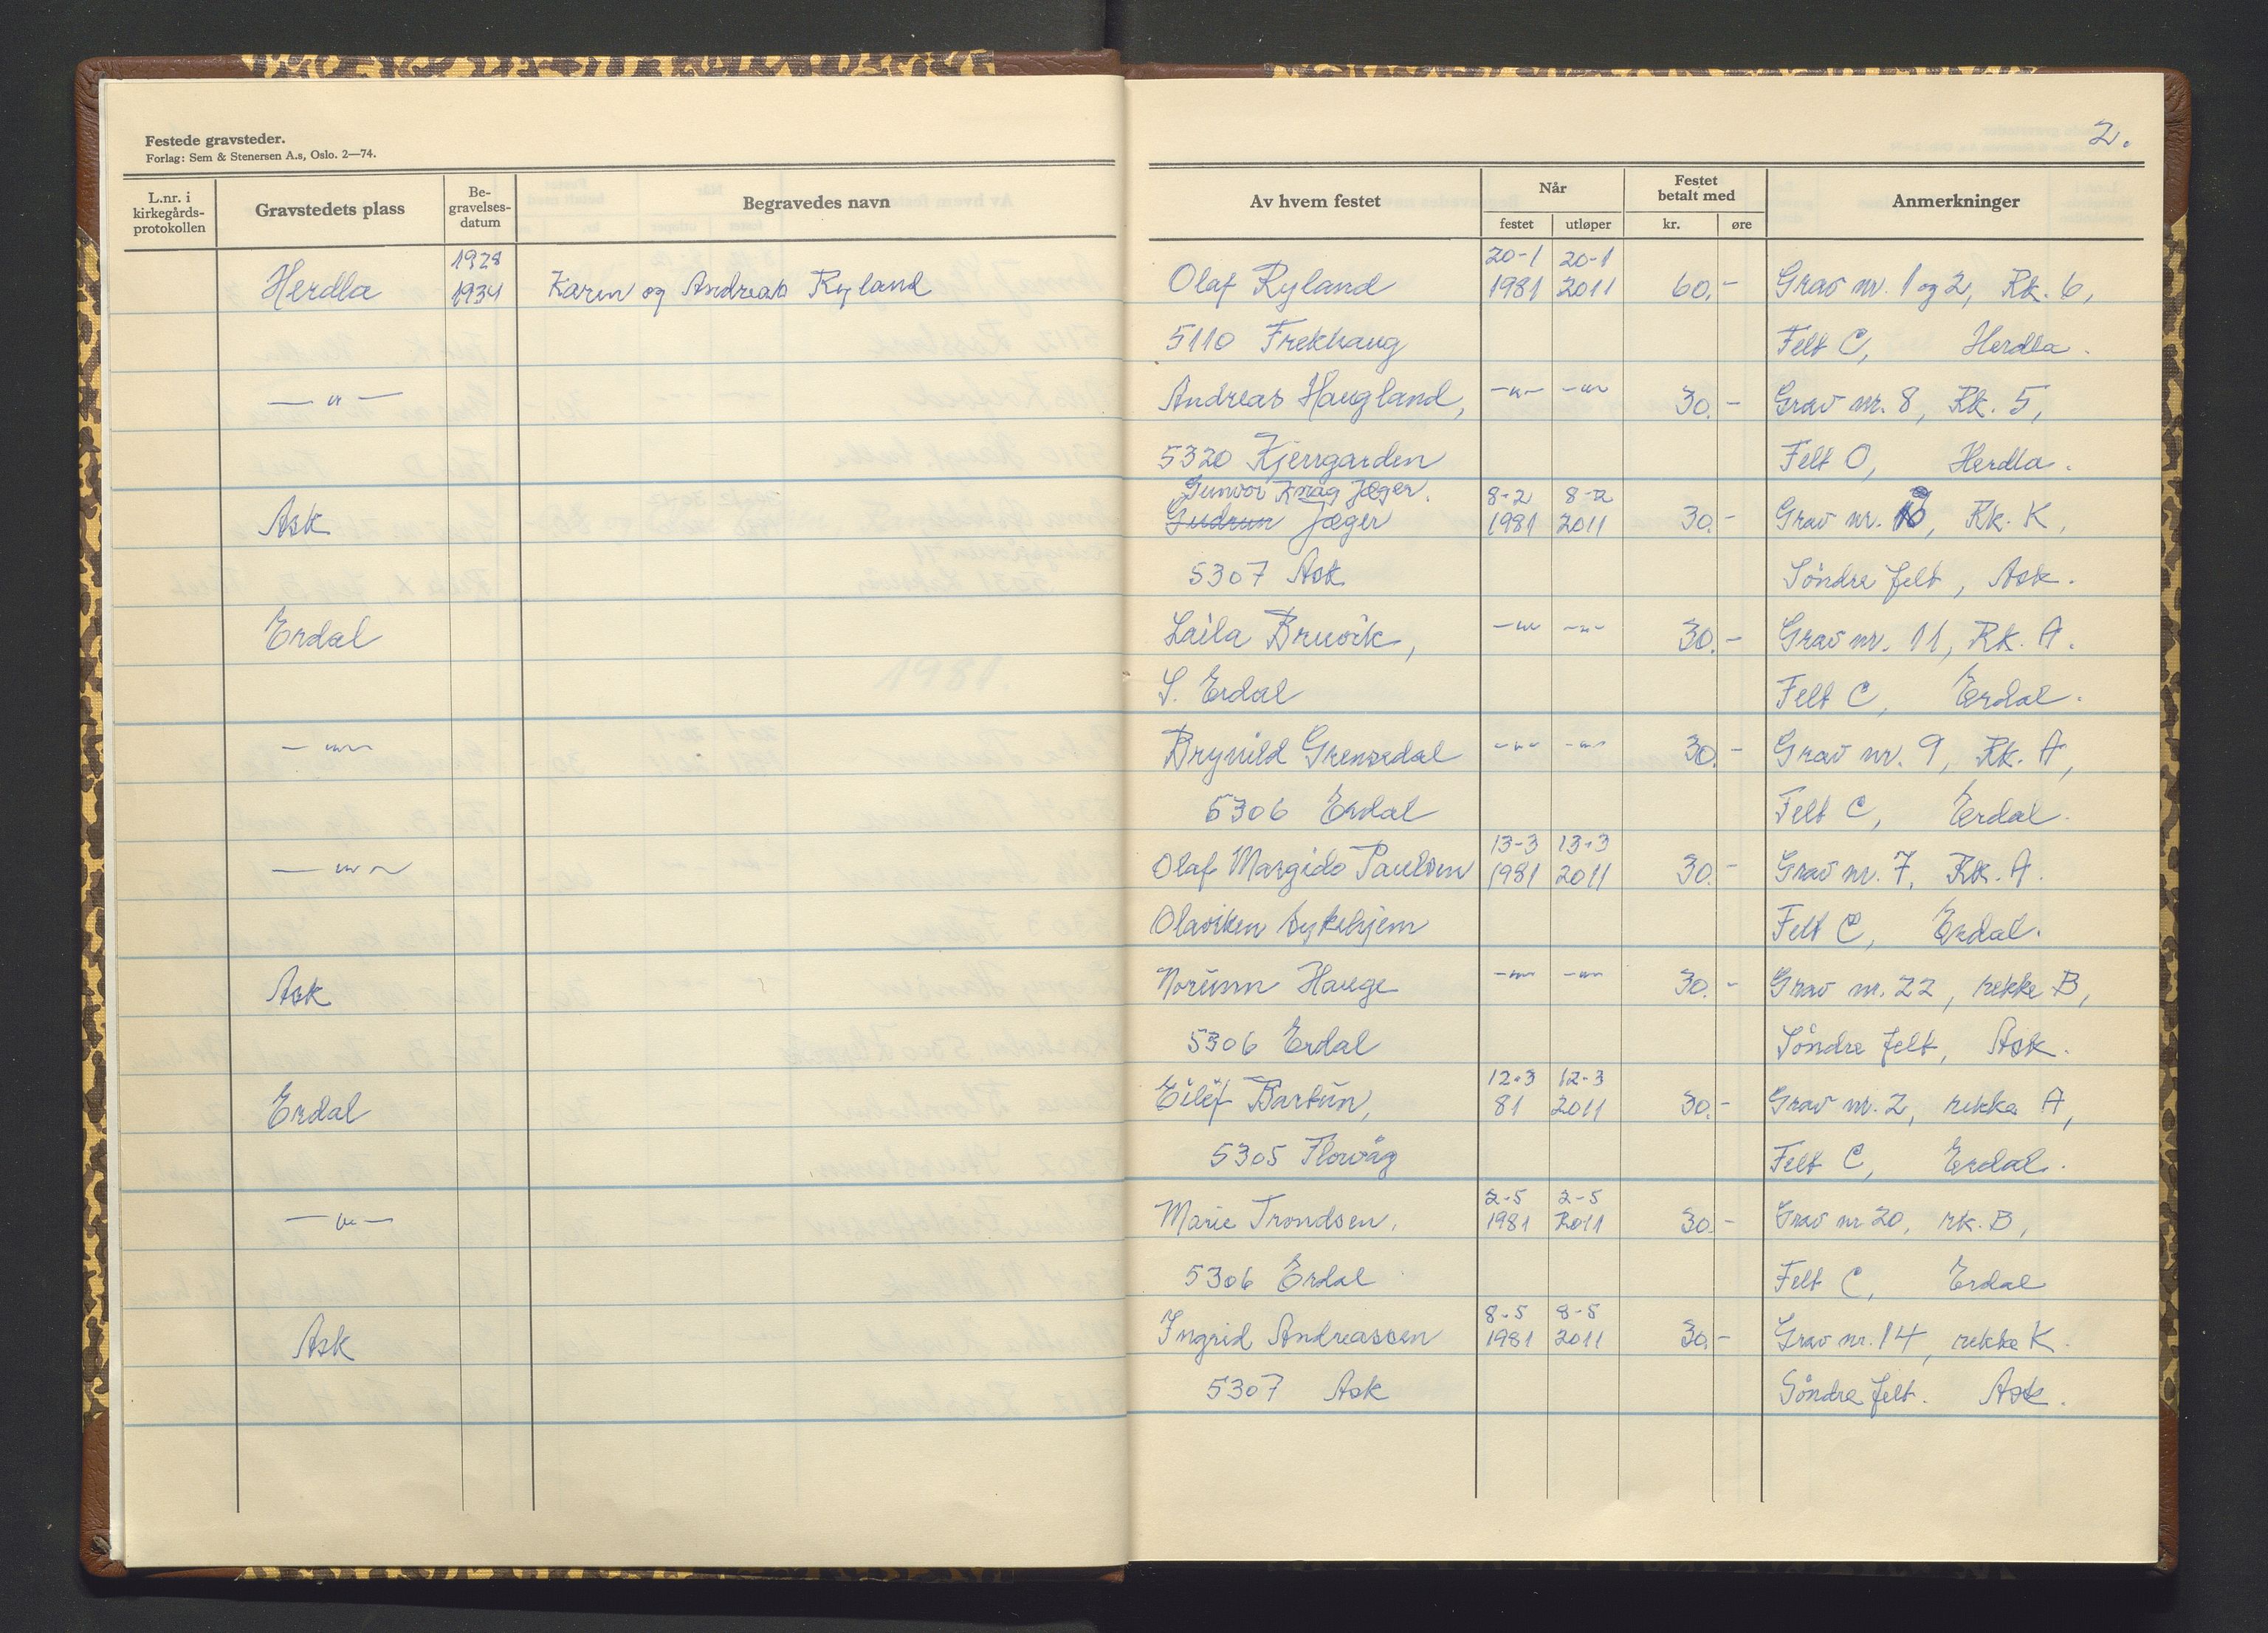 Festede gravsteder.
Forlag: Sem & Stenersen A.s, Oslo. 2—74.
L.nr. i kirkegårds-protokollen | Gravstedets plass | Be-gravelses-datum | Begravedes navn
Herdla | 1928 1934 | Karen og Andreas Ryland
— " —
Ask
Erdal
— " —
— " —
Ask
Erdal
— " —
Ask
2.
Av hvem festet | Når festet | utløper | Festet betalt med kr. | øre | Anmerkninger
20-1 20-1
Olaf Ryland 1981 2011 60,- Grav nr. 1 og 2, Rk. 6,
5110 Frekhaug Felt C, Herdla.
Andreas Haugland, — " — — " — 30,- Grav nr. 8, Rk. 5,
5320 Kjerrgarden Felt O, Herdla.
Gunvor Knag Jæger. 8-2 8-2
Gudrun Jæger 1981 2011 30,- Grav nr. , Rk. K,
5307 Ask Söndre felt, Ask.
Laila Bruvik, — " — — " — 30,- Grav nr. 11, Rk. A.
S. Erdal Felt C, Erdal.
Brynild Grensedal — " — — " — 30,- Grav nr. 9, Rk. A,
5306 Erdal Felt C, Erdal.
13-3 13-3
Olaf Margido Paulsen 1981 2011 30,- Grav nr. 7, Rk. A.
Olaviken sykehjem Felt C, Erdal.
Norunn Hauge — " — — " — 30,- Grav nr. 22, rekke B,
5306 Erdal Söndre felt, Ask.
12-3 12-3
Eilef Bartun, 81 2011 30,- Grav nr. 2, rekke A,
5305 Florvåg Felt C, Erdal.
2-5 2-5
Marie Trondsen, 1981 2011 30,- Grav nr 20, rk. B,
5306 Erdal Felt C, Erdal
8-5 8-5
Ingrid Andreassen 1981 2011 30,- Grav nr. 14, rekke K.
5307 Ask Söndre felt. Ask.